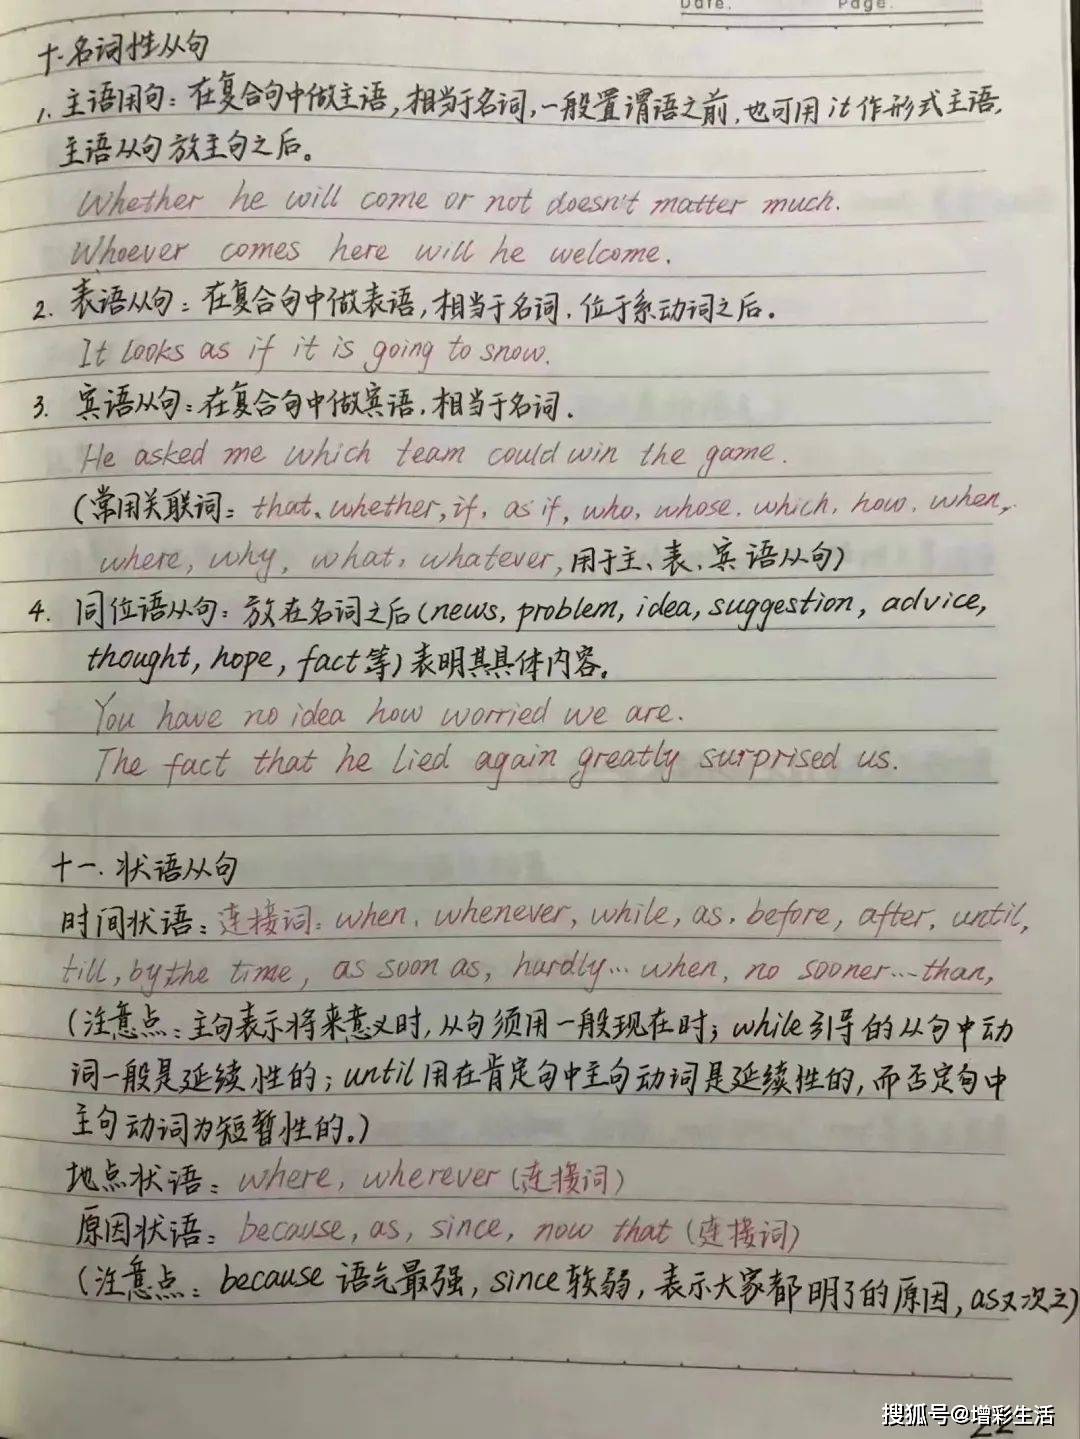 Date. Page.
十.名词性从句
1.主语用句:在复合句中做主语,相当于名词,一般置谓语之前,也可用it作形式主语,
主语从句放主句之后。
Whether he will come or not doesn't matter much.
Whoever comes here will he welcome.
2.表语从句:在复合句中做表语,相当于名词,位于系动词之后。
It looks as if it is going to snow.
3.宾语从句:在复合句中做宾语,相当于名词.
He asked me which team could win the game.
(常用关联词:that、whether,if,as if,who,whose.which,how.when,
where,why,what,whatever,用于主、表、宾语从句)
4.同位语从句:放在名词之后(news,problem,idea,suggestion,advice,
thought,hope,fact等)表明其具体内容。
You have no idea how worried we are.
The fact that he lied again greatly surprised us.
十一.状语从句
时间状语:连接词:when,whenever,while,as,before,after,until,
till,by the time,as soon as,hardly…when,no sooner…than,
(注意点:主句表示将来意义时,从句须用一般现在时;while引导的从句中动
词一般是延续性的;until用在肯定句中主句动词是延续性的,而否定句中
主句动词为短暂性的。)
地点状语:where,wherever(连接词)
原因状语:because,as,since,now that(连接词)
(注意点:because语气最强,since较弱,表示大家都明了的原因,as又次之)
22
搜狐号@增彩生活